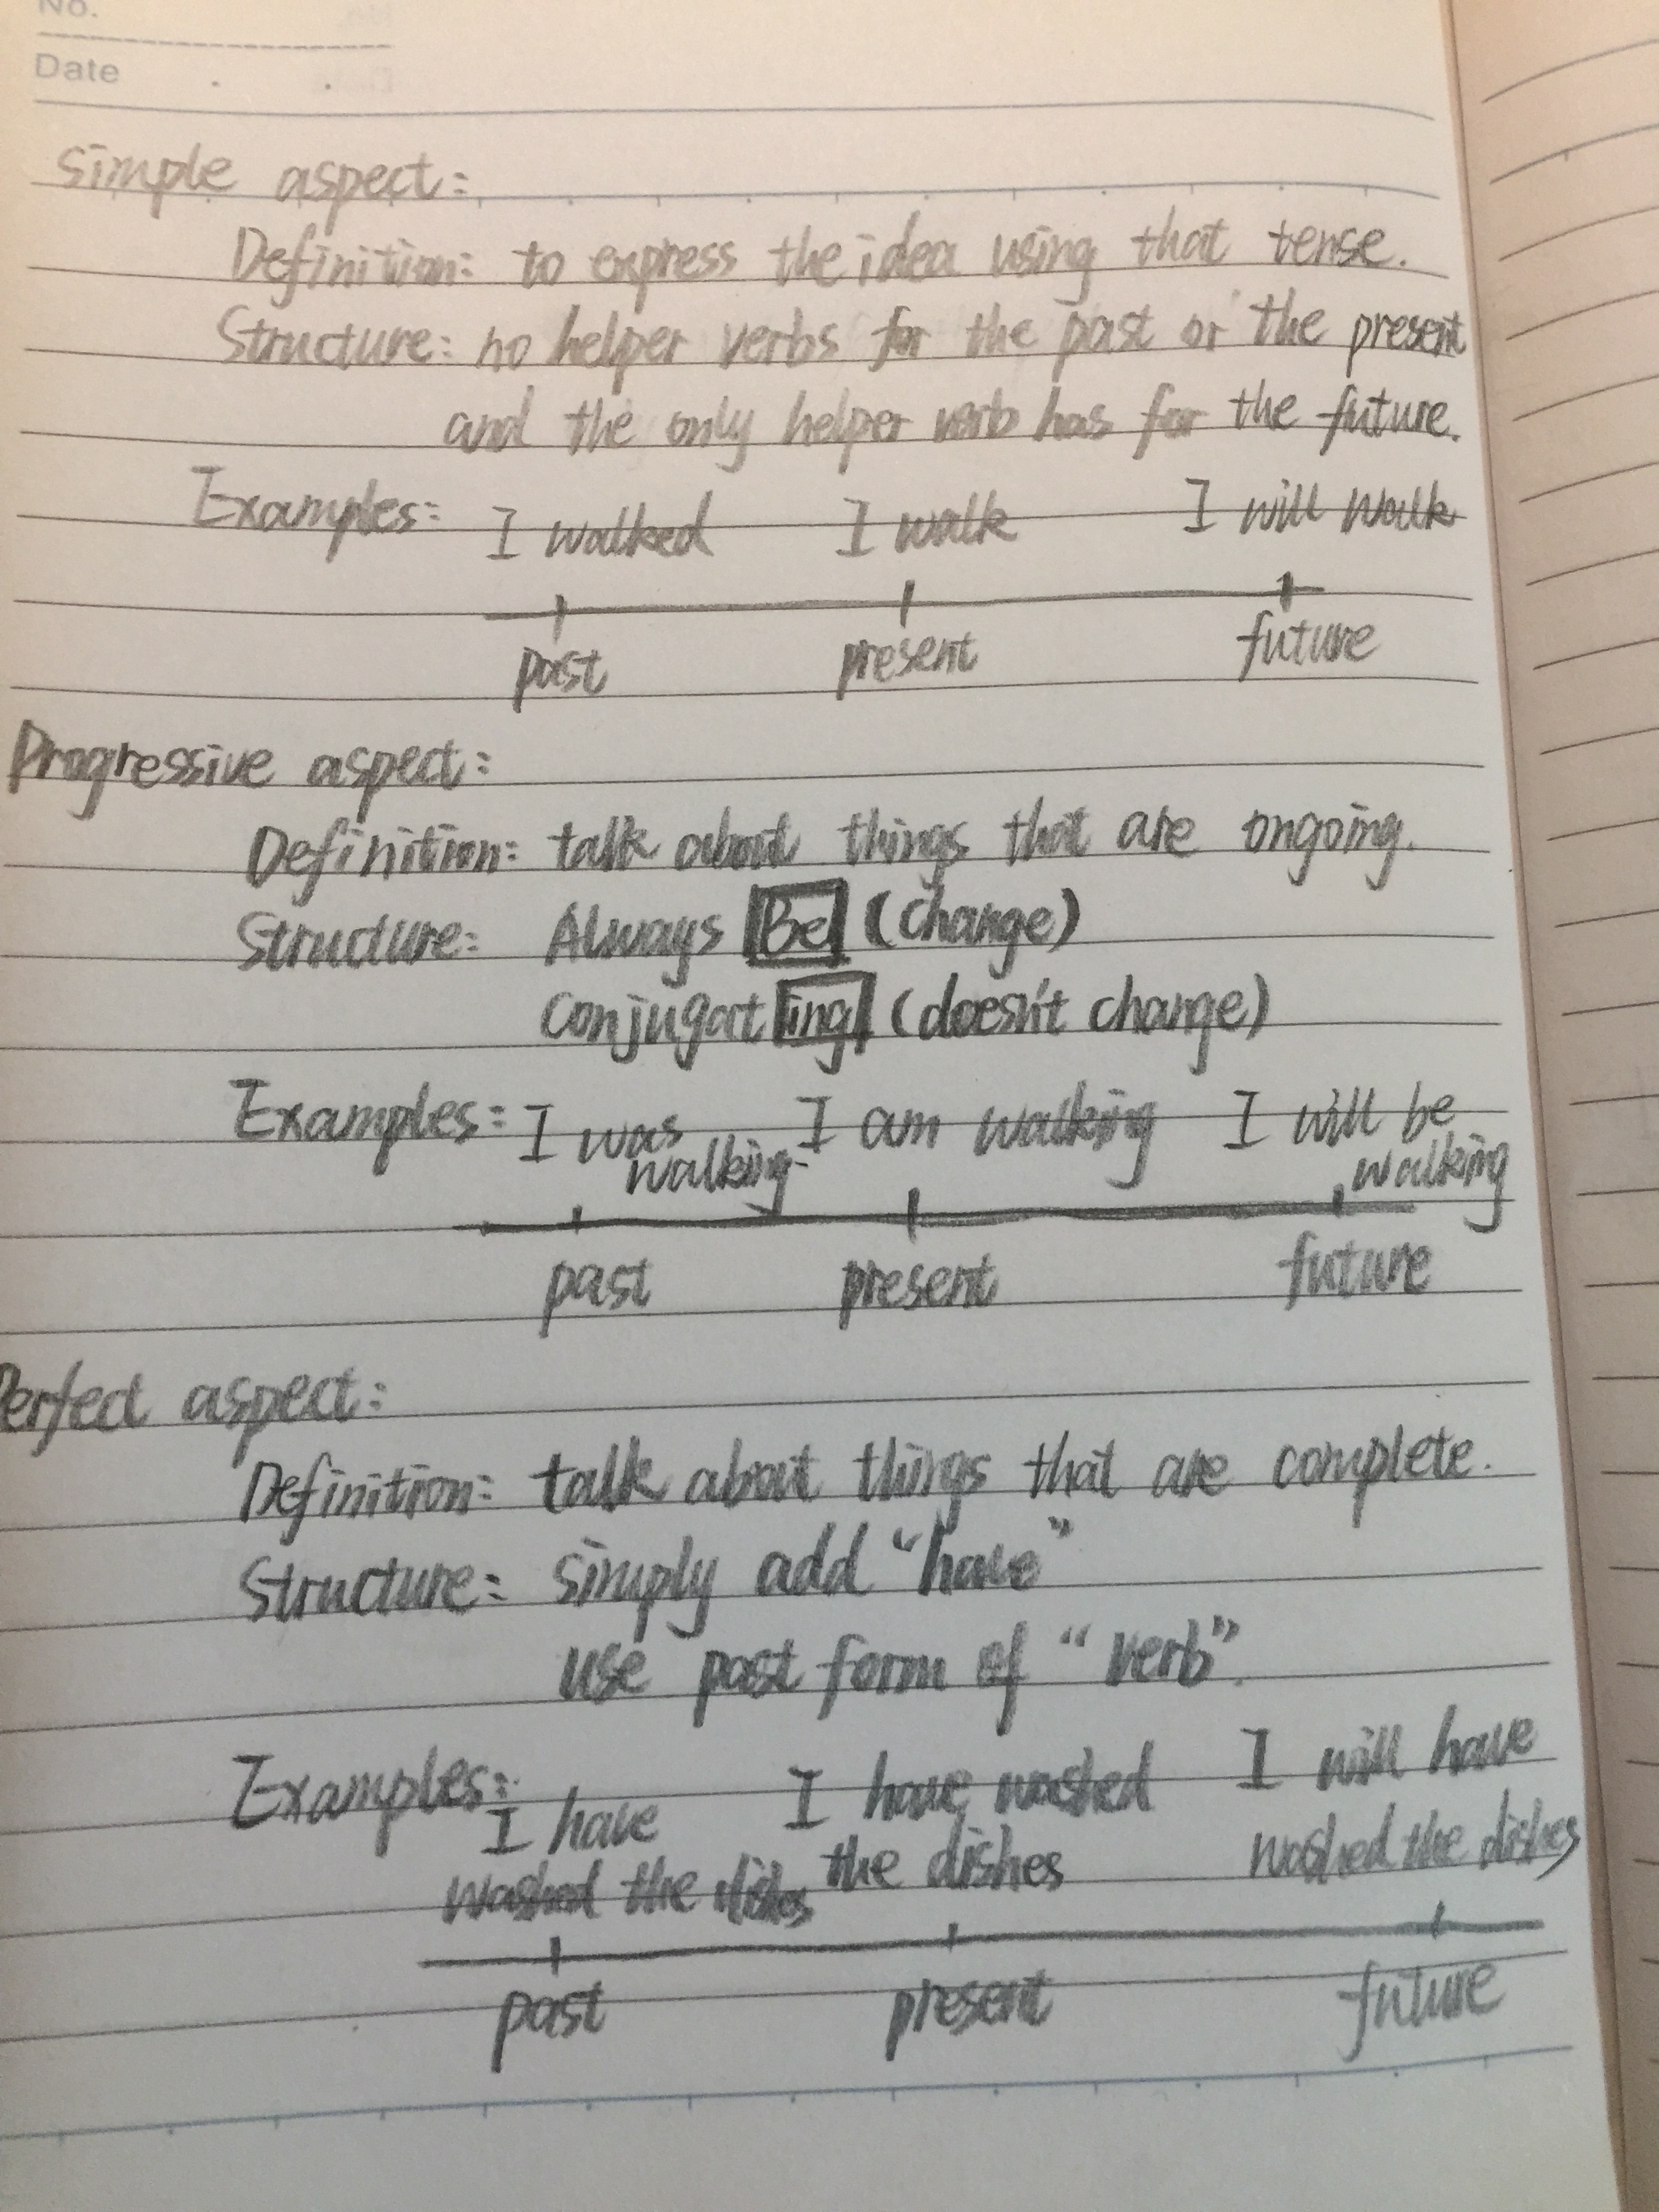 No.
Date
Simple aspect:
Definition: to express the idea using that tense.
Structure: no helper verbs for the past or the present
and the only helper verb has for the future.
Examples: I walked I walk I will walk
past present future
Progressive aspect:
Definition: talk about things that are ongoing.
Structure: Always Be (change)
Conjugat ing (doesn't change)
Examples: I was walking. I am walking I will be walking
past present future
Perfect aspect:
Definition: talk about things that are complete.
Structure: simply add "have"
use past form of "verb".
Examples: I have I have washed I will have
washed the dishes the dishes washed the dishes
past present future